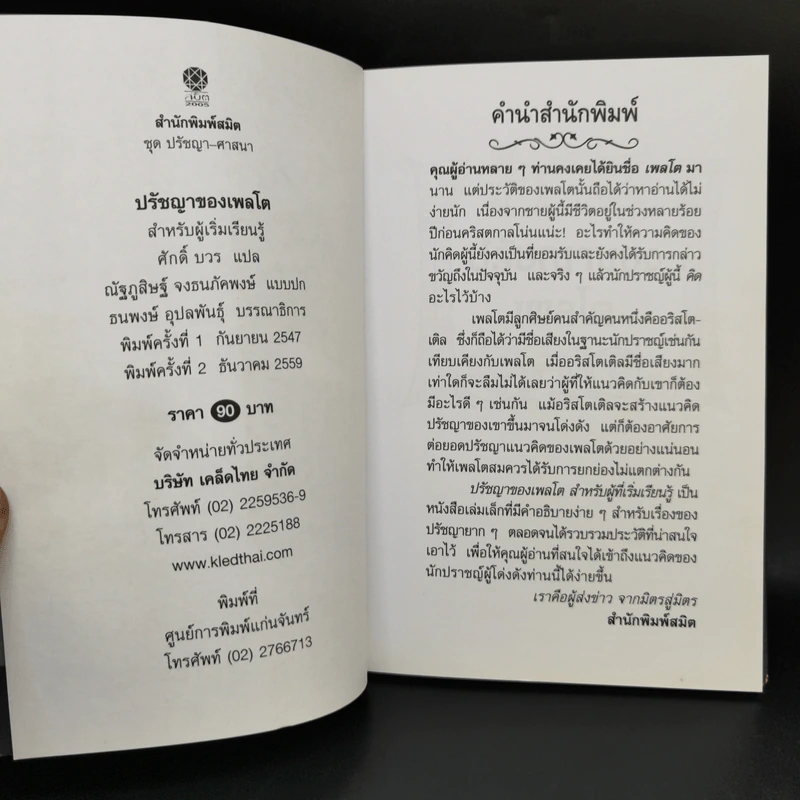 สมิต
2005
สำนักพิมพ์สมิต
ชุด ปรัชญา–ศาสนา
ปรัชญาของเพลโต
สำหรับผู้เริ่มเรียนรู้
ศักดิ์ บวร แปล
ณัฐภูสิษฐ์ จงธนภัคพงษ์ แบบปก
ธนพงษ์ อุปลพันธุ์ บรรณาธิการ
พิมพ์ครั้งที่ 1 กันยายน 2547
พิมพ์ครั้งที่ 2 ธันวาคม 2559
ราคา 90 บาท
จัดจำหน่ายทั่วประเทศ
บริษัท เคล็ดไทย จำกัด
โทรศัพท์ (02) 2259536-9
โทรสาร (02) 2225188
www.kledthai.com
พิมพ์ที่
ศูนย์การพิมพ์แก่นจันทร์
โทรศัพท์ (02) 2766713
คำนำสำนักพิมพ์
คุณผู้อ่านหลาย ๆ ท่านคงเคยได้ยินชื่อ เพลโต มา
นาน แต่ประวัติของเพลโตนั้นถือได้ว่าหาอ่านได้ไม่
ง่ายนัก เนื่องจากชายผู้นี้มีชีวิตอยู่ในช่วงหลายร้อย
ปีก่อนคริสตกาลโน่นแน่ะ! อะไรทำให้ความคิดของ
นักคิดผู้นี้ยังคงเป็นที่ยอมรับและยังคงได้รับการกล่าว
ขวัญถึงในปัจจุบัน และจริง ๆ แล้วนักปราชญ์ผู้นี้ คิด
อะไรไว้บ้าง
เพลโตมีลูกศิษย์คนสำคัญคนหนึ่งคืออริสโต-
เติล ซึ่งก็ถือได้ว่ามีชื่อเสียงในฐานะนักปราชญ์เช่นกัน
เทียบเคียงกับเพลโต เมื่ออริสโตเติลมีชื่อเสียงมาก
เท่าใดก็จะลืมไม่ได้เลยว่าผู้ที่ให้แนวคิดกับเขาก็ต้อง
มีอะไรดี ๆ เช่นกัน แม้อริสโตเติลจะสร้างแนวคิด
ปรัชญาของเขาขึ้นมาจนโด่งดัง แต่ก็ต้องอาศัยการ
ต่อยอดปรัชญาแนวคิดของเพลโตด้วยอย่างแน่นอน
ทำให้เพลโตสมควรได้รับการยกย่องไม่แตกต่างกัน
ปรัชญาของเพลโต สำหรับผู้ที่เริ่มเรียนรู้ เป็น
หนังสือเล่มเล็กที่มีคำอธิบายง่าย ๆ สำหรับเรื่องของ
ปรัชญายาก ๆ ตลอดจนได้รวบรวมประวัติที่น่าสนใจ
เอาไว้ เพื่อให้คุณผู้อ่านที่สนใจได้เข้าถึงแนวคิดของ
นักปราชญ์ผู้โด่งดังท่านนี้ได้ง่ายขึ้น
เราคือผู้ส่งข่าว จากมิตรสู่มิตร
สำนักพิมพ์สมิต